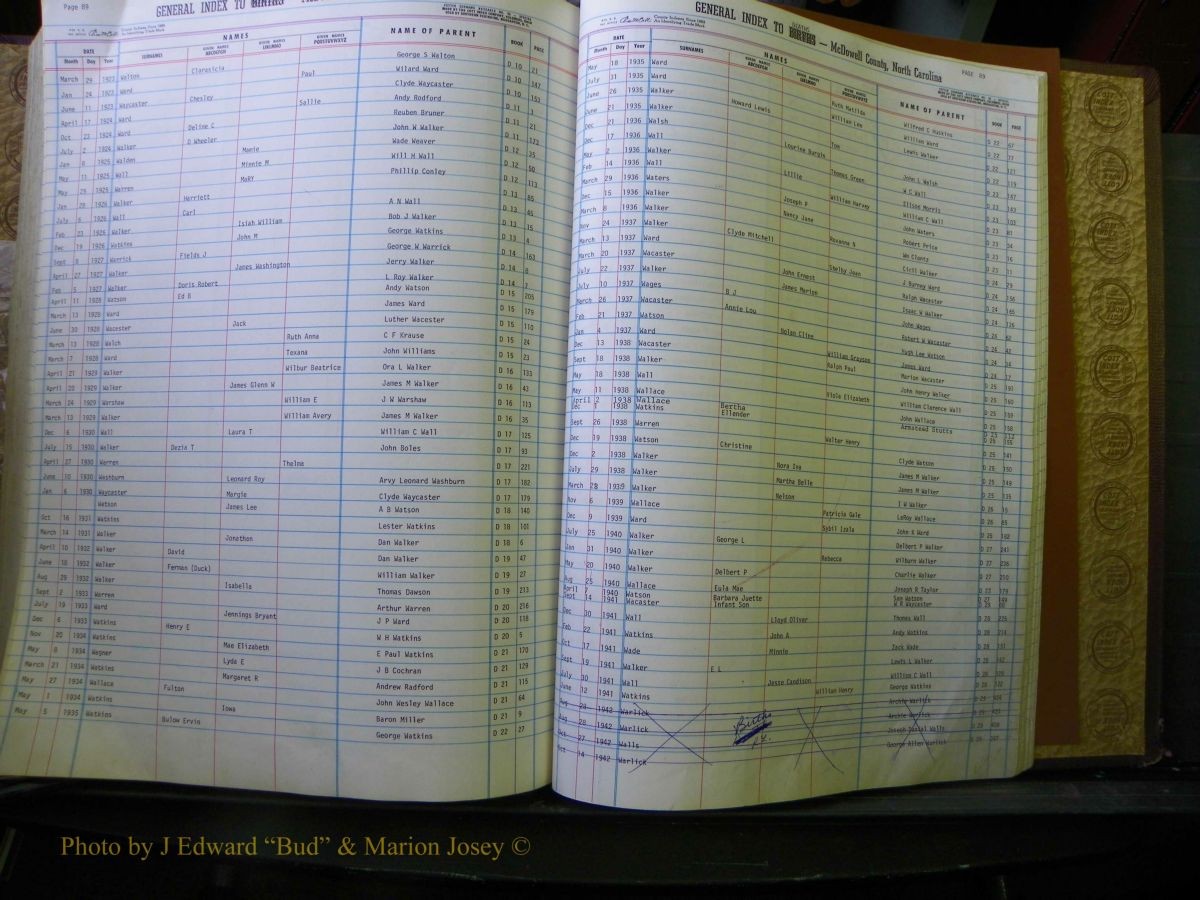 Page 89
GENERAL INDEX TO BIRTHS
NAMES
NAME OF PARENT
BOOK PAGE
DATE
Month Day Year SURNAMES
March 29 1923 Walton Clarasicia George S Walton D 10 21
Jan 24 1922 Ward Paul Wilard Ward D 10 147
June 11 1923 Waycaster Chesley Clyde Waycaster D 10 153
April 17 1924 Ward Sallie Andy Rodford D 11 3
Oct 23 1924 Ward Deline C Reuben Bruner D 11 21
July 2 1924 Walker D Wheeler John W Walker D 11 173
Jan 8 1925 Walden Mamie Wade Weaver D 12 35
May 11 1925 Wall Minnie M Will H Wall D 12 50
May 25 1925 Warren MaRY Phillip Conley D 12 113
Jan 20 1926 Walker Harriett D 13 85
July 6 1926 Wall Carl A N Wall D 13 45
Feb 23 1926 Walker Isiah William Bob J Walker D 13 15
Dec 19 1926 Watkins John M George Watkins D 13 4
Sept 8 1927 Warrick Fields J George W Warrick D 14 163
April 27 1927 Walker James Washington Jerry Walker D 14 8
Feb 5 1927 Walker Doris Robert L Roy Walker D 14 2
April 11 1928 Watson Ed B Andy Watson D 15 205
March 13 1928 Ward James Ward D 15 179
June 30 1928 Wacester Jack Luther Wacester D 15 110
March 13 1928 Welch Ruth Anna C F Krause D 15 24
March 7 1928 Ward Texana John Williams D 15 23
April 21 1929 Walker Wilbur Beatrice Ora L Walker D 16 133
April 20 1929 Walker James Glenn W James M Walker D 16 43
March 24 1929 Warshaw William E J W Warshaw D 16 113
March 13 1929 Walker William Avery James M Walker D 16 35
Dec 6 1930 Wall Laura T William C Wall D 17 125
July 15 1930 Walker Dezia T John Boles D 17 93
April 27 1930 Warren Thelma D 17 221
June 10 1930 Washburn Leonard Roy Arvy Leonard Washburn D 17 182
Jan 6 1930 Waycaster Margie Clyde Waycaster D 17 179
Watson James Lee A B Watson D 18 140
Oct 16 1931 Watkins Lester Watkins D 18 101
March 14 1931 Walker Jonathon Dan Walker D 18 6
April 10 1932 Walker David Dan Walker D 19 47
June 18 1932 Walker Ferman (Duck) William Walker D 19 27
Aug 29 1932 Walker Isabella Thomas Dawson D 19 213
Sept 2 1933 Warren Arthur Warren D 20 216
July 19 1933 Ward Jennings Bryant J P Ward D 20 118
Dec 6 1933 Watkins Henry E W H Watkins D 20 5
Nov 20 1934 Watkins Mae Elizabeth E Paul Watkins D 21 170
May 8 1934 Wagner Lyda E J B Cochran D 21 129
March 21 1934 Watkins Margaret R Andrew Radford D 21 115
May 27 1934 Wallace Fulton John Wesley Wallace D 21 64
May 1 1934 Watkins Iowa Baron Miller D 21 9
May 5 1935 Watkins Bulow Ervin George Watkins D 22 27
GENERAL INDEX TO BIRTHS — McDowell County, North Carolina PAGE 89
DEATHS
DATE
Month Day Year SURNAMES NAMES NAME OF PARENT BOOK PAGE
May 18 1935 Ward Ruth Matilda Wilfred C Huskins D 22 67
July 31 1935 Ward William Lee William Ward D 22 77
June 26 1935 Walker Howard Lewis Lewis Walker D 22 121
June 21 1935 Walker Tom D 22 119
Dec 21 1936 Walsh John L Walsh D 23 167
Dec 17 1936 Wall Thomas Green W C Wall D 23 143
May 2 1936 Walker Lillie Ellson Morris D 23 103
Feb 14 1936 Wall William Harvey William C Wall D 23 81
March 29 1936 Waters Joseph P John Waters D 23 34
Dec 15 1936 Walker Nancy Jane Robert Price D 23 16
March 8 1936 Walker Roxanna N D 23 11
Nov 24 1937 Walker Clyde Mitchell Cicil Walker D 24
March 13 1937 Ward Shelby Jean J Barney Ward D 24 156
March 20 1937 Wacaster John Ernest Ralph Wacaster D 24
July 22 1937 Walker James Marion Isaac W Walker D 24
July 10 1937 Wages B J John Wages D 24
March 26 1937 Wacaster Annie Lou Robert W Wacaster D 24
Feb 21 1937 Watson Nolan Cline Hugh Lee Watson D 24
Jan 4 1937 Ward William Grayson James Ward D 24
Dec 13 1938 Wacaster Ralph Paul Marion Wacaster D 25
Sept 18 1938 Walker John Henry Walker D 25
May 18 1938 Wall Viola Elizabeth William Clarence Wall D 25 159
May 11 1938 Wallace John Wallace D 25 158
April 2 1938 Wallace Bertha Armstead Stutts D 25
Dec 1 1938 Watkins Ellender D 25 155
Sept 26 1938 Warren Walter Henry D 25 141
Dec 19 1938 Watson Christine Clyde Watson D 25 150
Dec 2 1938 Walker Nora Iva James M Walker D 25 149
July 29 1938 Walker Martha Belle James M Walker D 25 135
March 28 1939 Walker Nelson I W Walker D 26 15
Nov 6 1939 Wallace Patricia Gale LaRoy Wallace D 26 85
Dec 9 1939 Ward Sybil Izala John K Ward D 26 182
July 25 1940 Walker George L Delbert P Walker D 27 241
Jan 31 1940 Walker Rebecca Wilburn Walker D 27 236
May 20 1940 Walker Delbert P Charlie Walker D 27 210
Aug 25 1940 Wallace Eula Mae Joseph R Taylor D 27 179
April 7 1940 Watson Barbara Juette Sam Watson D 27 149
Sept 14 1941 Wacaster Infant Son W R Waycaster D 28
Dec 30 1941 Wall Lloyd Oliver Thomas Wall D 28 226
Feb 22 1941 Watkins John A Andy Watkins D 28 214
Oct 17 1941 Wade Minnie Jack Wade D 28 151
Sept 19 1941 Walker E L Lewis L Walker D 28 162
July 30 1941 Wall Jesse Candison William C Wall D 28 126
June 12 1941 Watkins William Henry George Watkins D 28 122
Aug 28 1942 Warlick Archie Warlick
Aug 28 1942 Warlick Archie Warlick
Oct 27 1942 Walls Joseph Daniel Walls
Oct 14 1942 Warlick George Allen Warlick
Births
Photo by J Edward “Bud” & Marion Josey ©